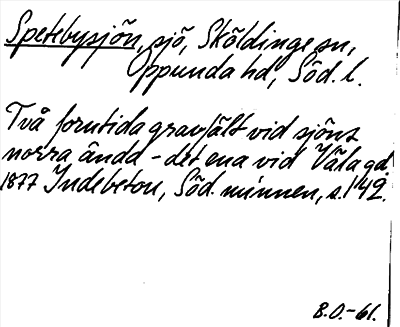 Spetebysjön, sjö, Sköldinge sn,
Oppunda hd, Söd. l.
Två forntida gravfält vid sjöns
norra ända – det ena vid Våla gd.
1877 Indebetou, Söd. minnen, s. 142.
B.O.-61.